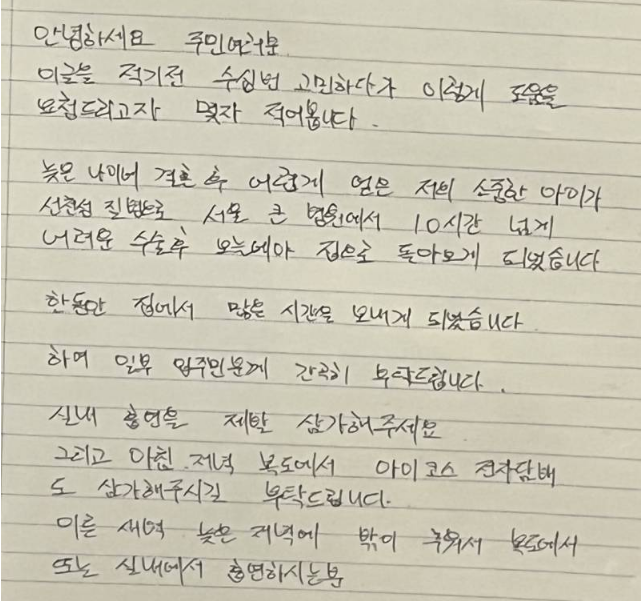 안녕하세요 주민여러분
이글을 적기전 수십번 고민하다가 이렇게 도움을
요청드리고자 몇자 적어봅니다.
늦은 나이에 결혼 후 어렵게 얻은 저의 소중한 아이가
선천성 질병으로 서울 큰 병원에서 10시간 넘게
어려운 수술후 오늘에야 집으로 돌아오게 되었습니다
한동안 집에서 많은 시간을 보내게 되었습니다
하여 일부 입주민분께 간곡히 부탁드립니다.
실내 흡연을 제발 삼가해주세요
그리고 아침.저녁 복도에서 아이코스 전자담배
도 삼가해주시길 부탁드립니다.
이른 새벽 늦은 저녁에 밖이 추워서 복도에서
또는 실내에서 흡연하시는분